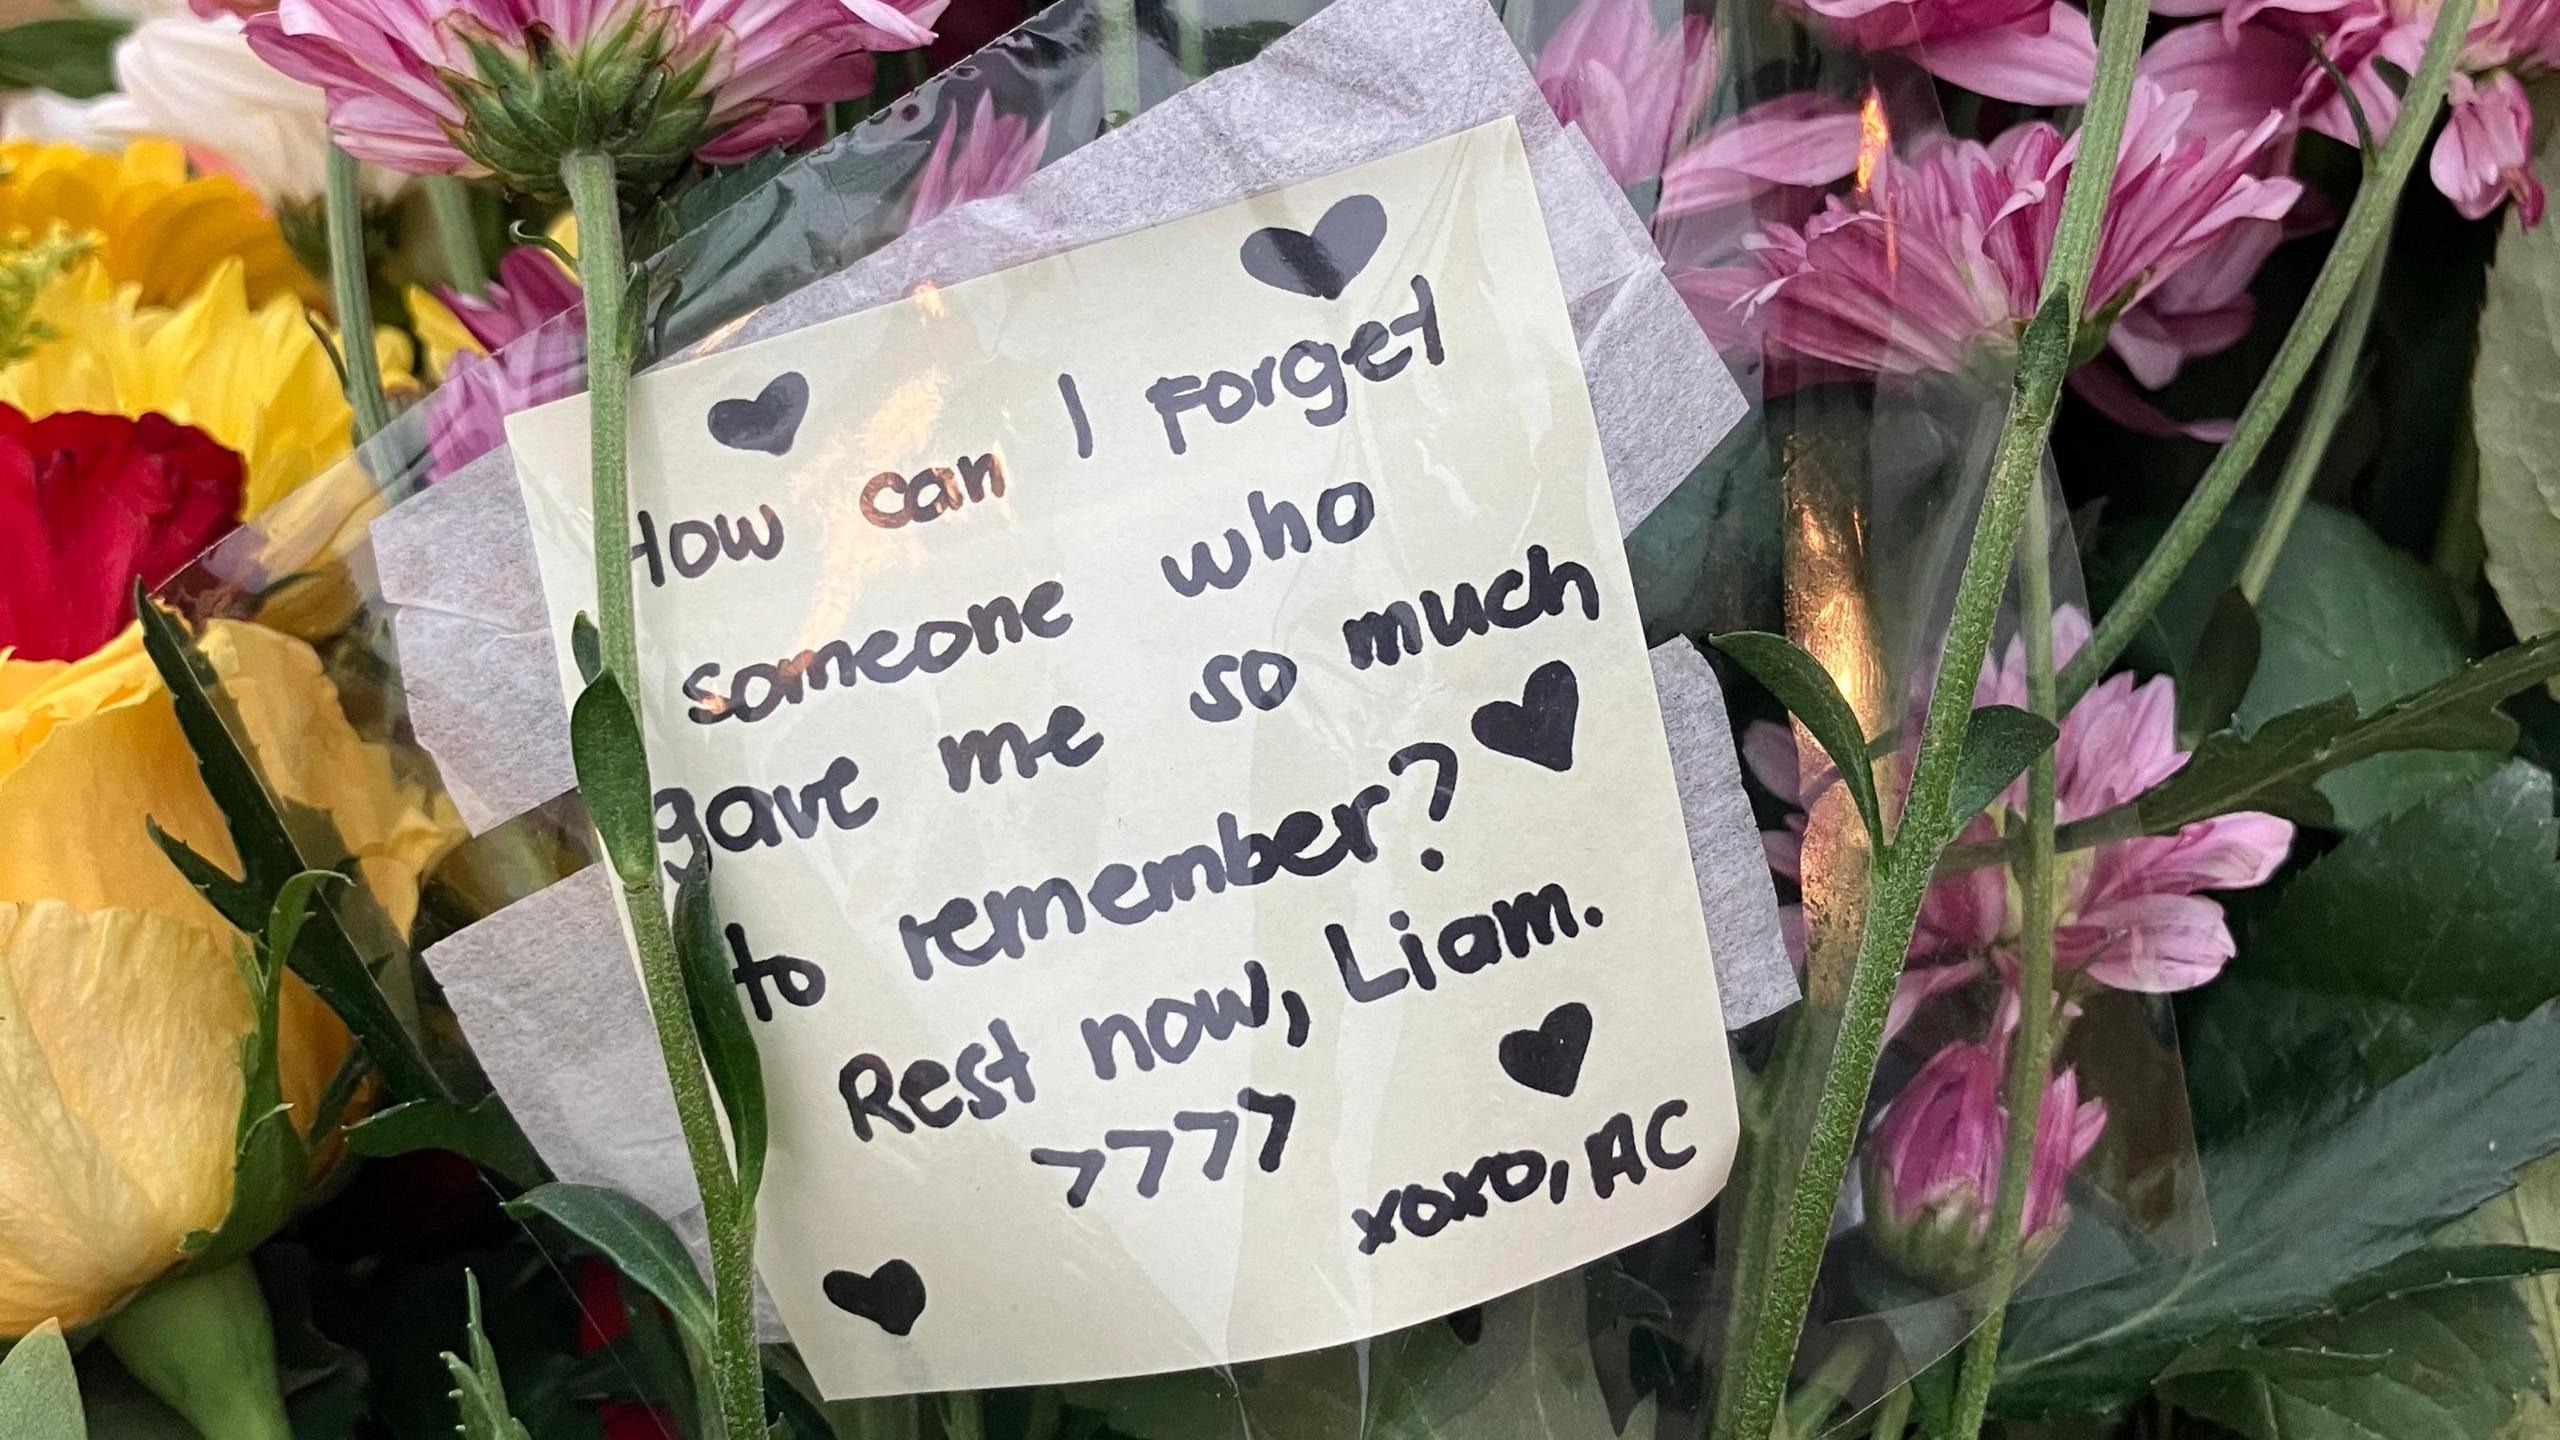 How can I Forget
someone who
gave me so much
to remember?
Rest now, Liam.
>>>>
xoxo, AC